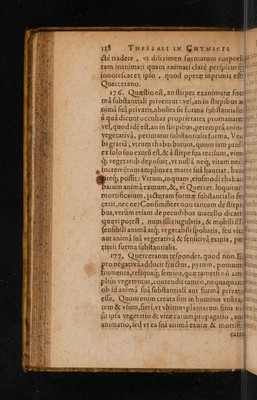 128 THESSALI IN CHYMICIS
cti tradere, vt discrimen formarum corpora
tam inanimati quam animati clarè perspicere
innotescat ex ipso, quod operæ inprimis est
Quercetano.
176. Quæstio est, an stirpes exanimatæ for
mâ substantiali priventur: vel, an in stirpibus a
nimâ suâ privatis, abolita sit forma substantialis
à quâ dicunt occultas proprietates promanare
vel, quod idē est, an in stirpibus, peremptâ animâ
vegetativâ, perimatur substantialis forma, Ver
bi gratiâ, vtrum rhabarbarum, quum iam
ex solo suo exutū est, & à stirpe sua recisum, vim
q́; vegetandi deposuit, vt nullâ neq́; vitam neq́;
possit: Vtrum, inquam, eiusmodi rhabar
barum animâ exutum, &, vt Quercet. loquitur
mortificatum, iacturam formæ substantialis fe
cerit, nec ne? Consimiliter non tantum de stirpi
bus, verùm etiam de pecudibus
quæri potest, num
sensibili animâ atq́; vegetabili spoliatis, seu
aut animâ suâ vegetativâ & sensitivâ exutis,
ierit forma substantialis.
177. Quercetanus respondet, quod non. E
pro negativa adducit fructus, pyrum, pomum
frumenta, reliquaq́; semina, quæ tametsi nō am
plius vegetentur, contendit tamen, nequaquam
ob id animâ suâ substantiali aut formâ
esse. Quum enim creata sint in hominis
tem & vsum, fieri, vt vltimus plantarum finis
sit ipsa vegetatio & vitæ earum propagatio,
animatio, sed vt ea suâ animâ exutæ & mortifi